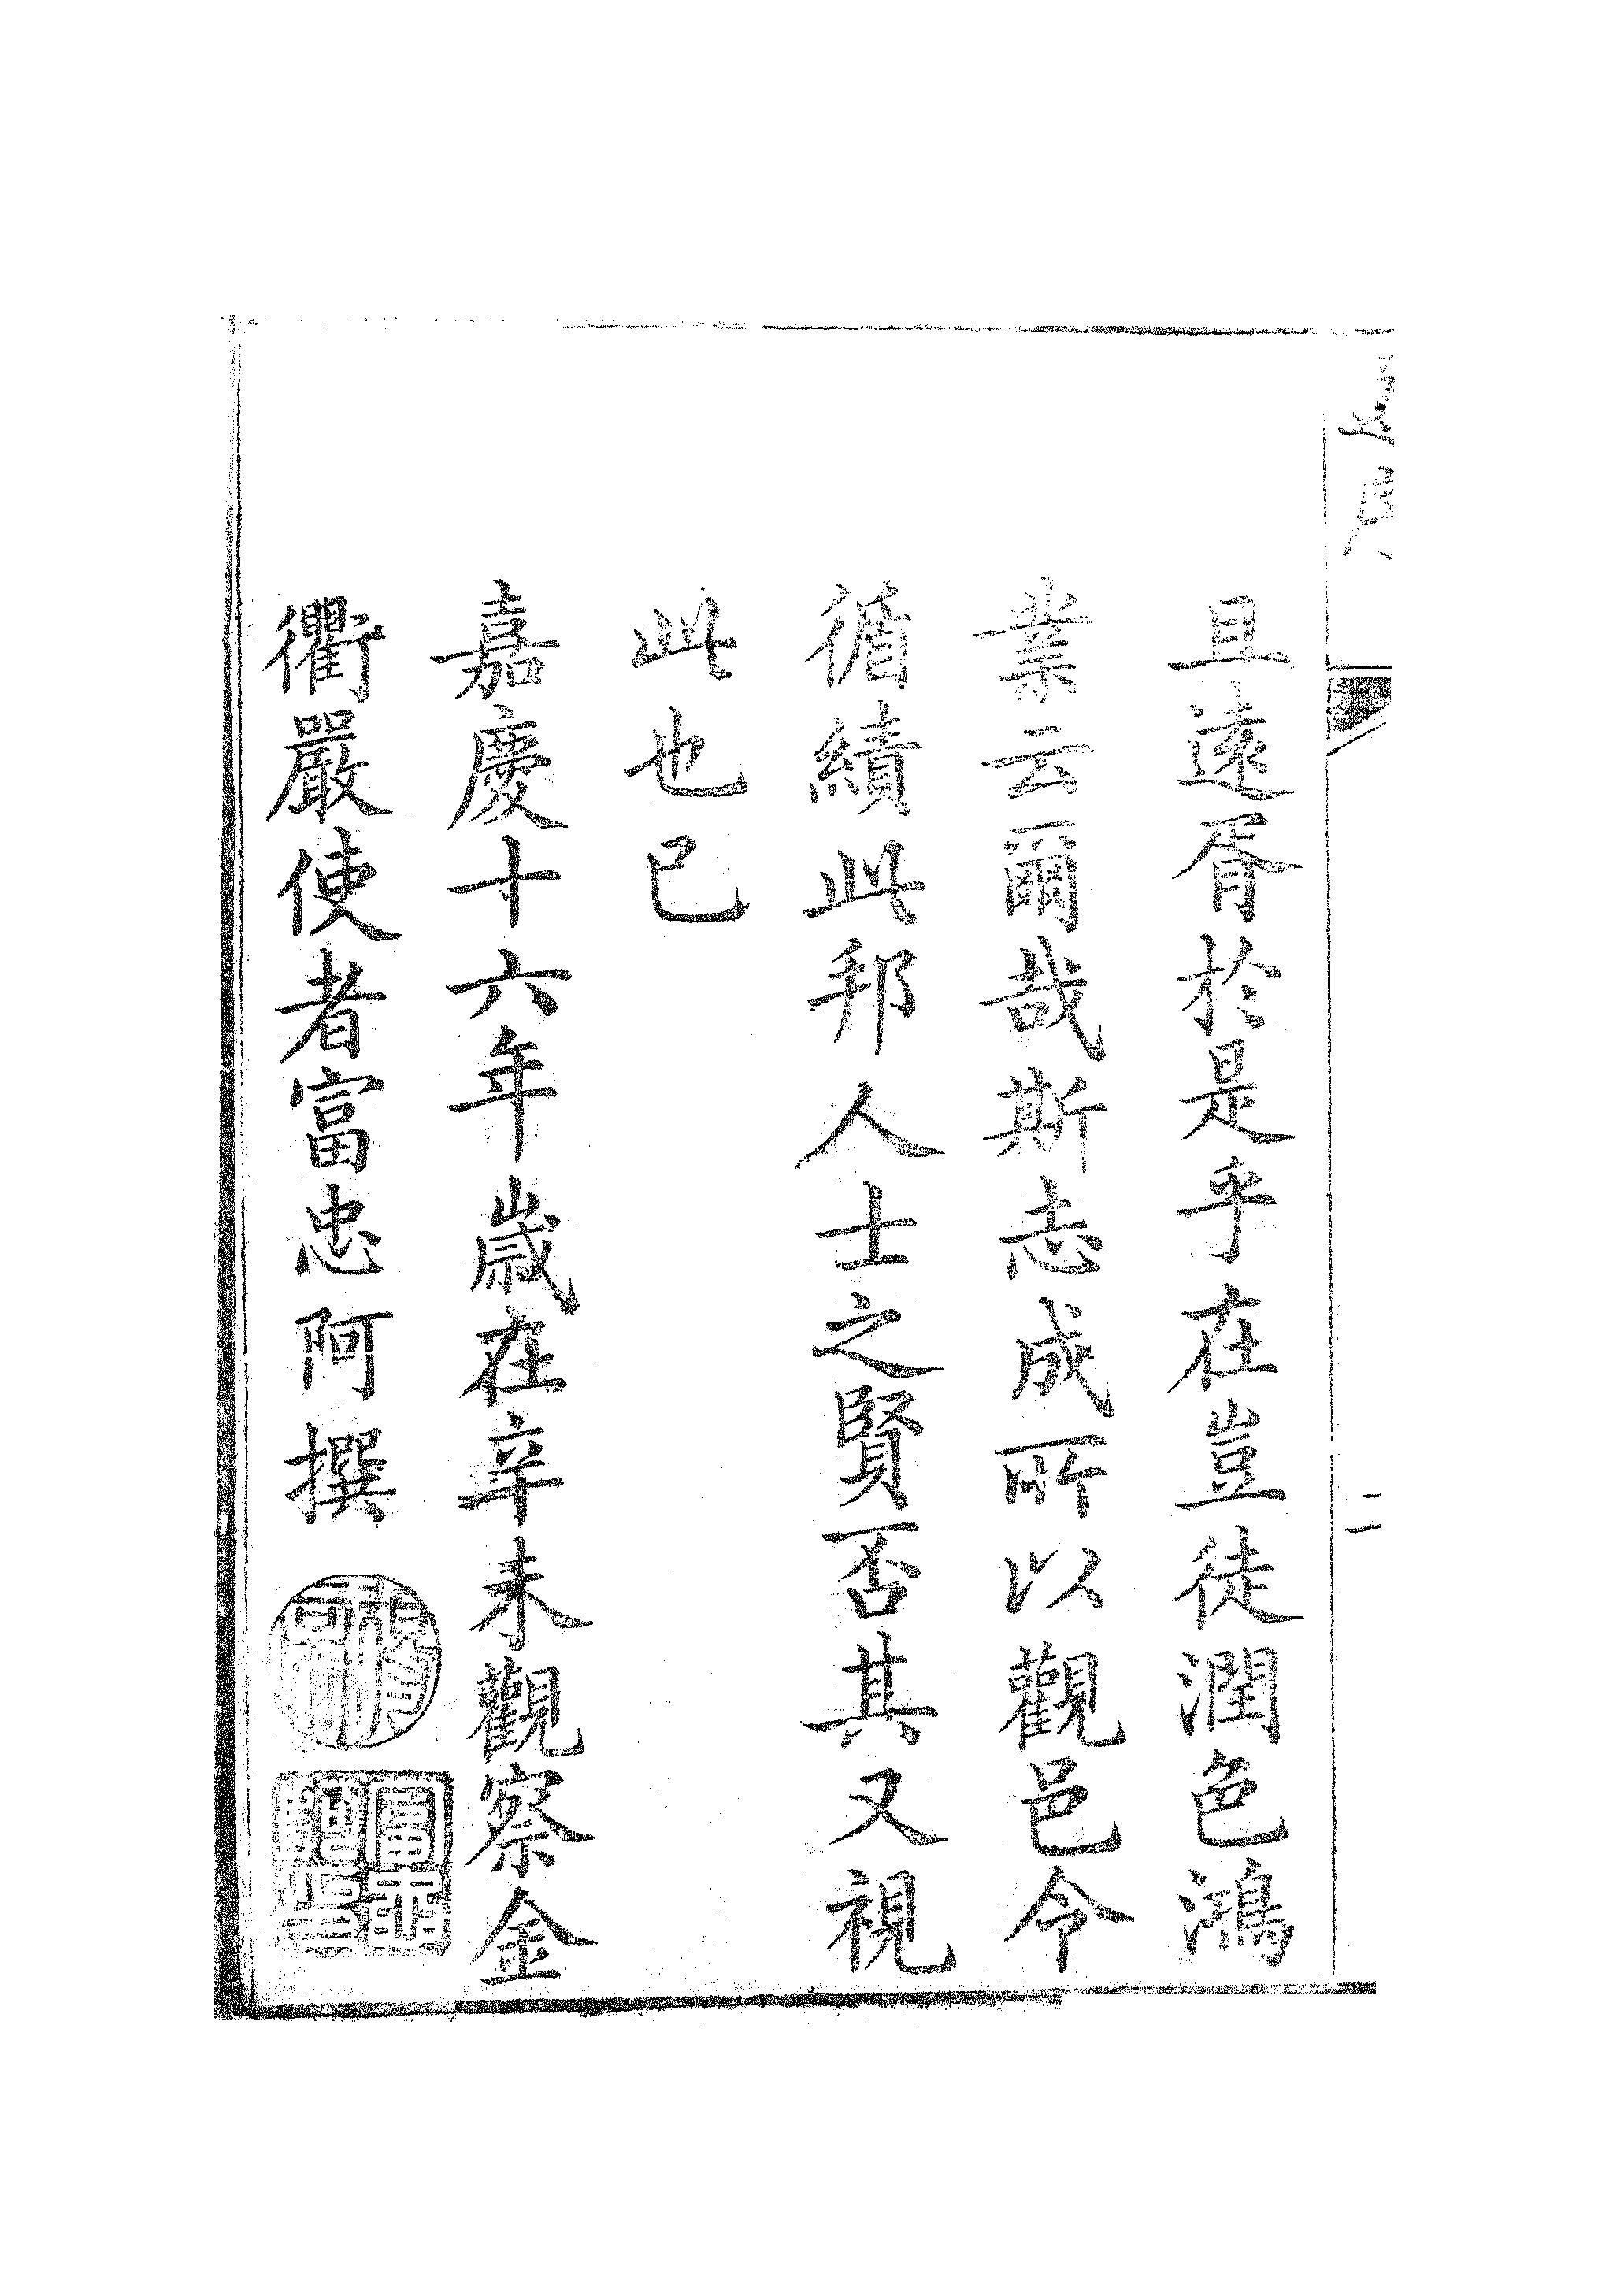 且遠胥於是乎在豈徒潤色鴻
業云爾哉斯志成所以觀邑令
循績此邦人士之賢否其又視
此也已
嘉慶十六年歲在辛未觀察金
衢嚴使者富忠阿撰
二